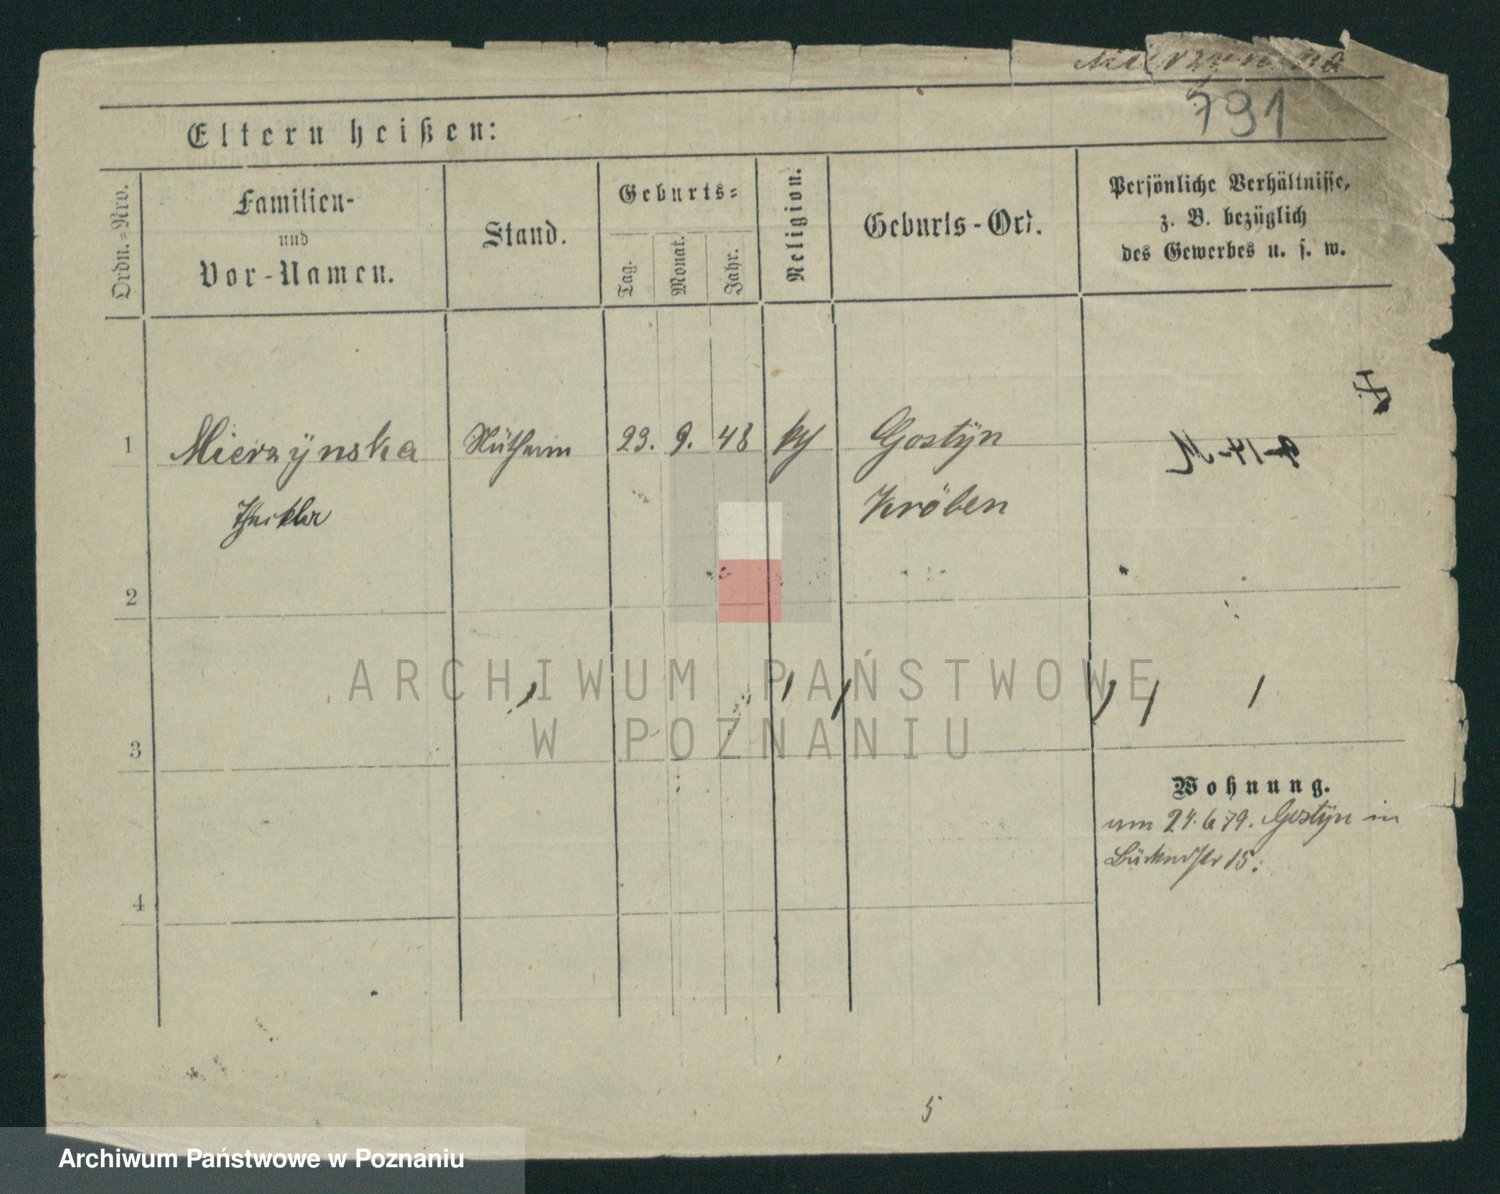 Mierzynska
791
Eltern heißen:
Ordn.-Nro.
Familien-
und
Vor-Namen.
Stand.
Geburts-
Tag.
Monat.
Jahr.
Religion.
Geburts-Ort.
Persönliche Verhältnisse,
z. B. bezüglich
des Gewerbes u. s. w.
1 Mierzÿnska 23. 9. 48 Gostÿn
Kröben
2
3
4
Wohnung.
um 24.6.79. Gostÿn in
15.
5
ARCHIWUM PAŃSTWOWE
W POZNANIU
Archiwum Państwowe w Poznaniu